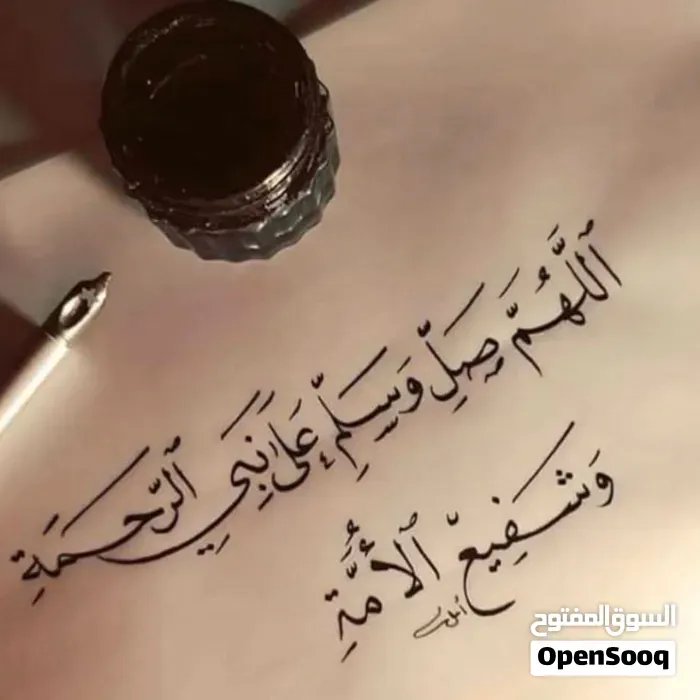 اللَّهُمَّ صَلِّ وَسَلِّمْ عَلَى نَبِيِ الرَّحمَةِ
وَشَفِيعِ الأُمَّةِ
السوق المفتوح
OpenSooq